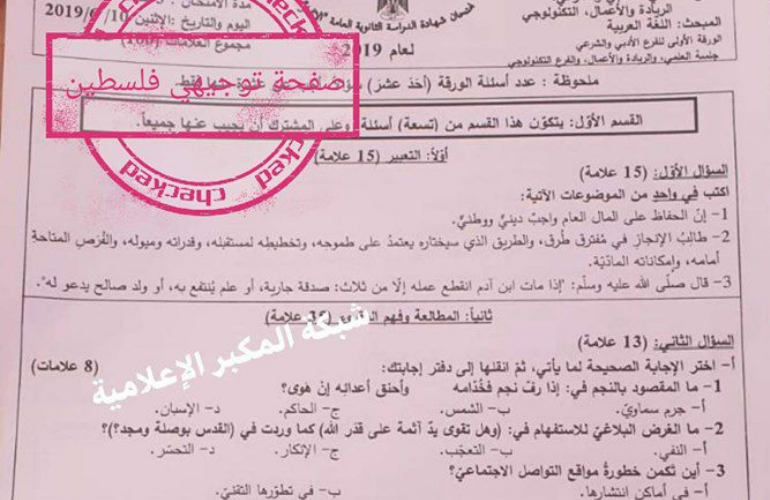 امتحان شهادة الدراسة الثانوية العامة
مدة الامتحان
الريادة والأعمال، التكنولوجي
اليوم والتاريخ: الإثنين 2019/6/10
المبحث: اللغة العربية
مجموع العلامات (100)
الورقة الأولى للفرع الأدبي والشرعي
لعام 2019
جلسة العلمي، والريادة والأعمال، والفرع التكنولوجي
checked
صفحة توجيهي فلسطين
ملحوظة : عدد أسئلة الورقة (أحَدَ عشرَ) فقط.
القسم الأوّل: يتكوّن هذا القسم من (تسعة) أسئلة وعلى المشترك أن يجيب عنها جميعاً.
أوّلاً: التعبير (15 علامة)
السؤال الأول: (15 علامة)
اكتب في واحدٍ من الموضوعات الآتية:
1- إنّ الحفاظ على المال العام واجبٌ دينيٌّ ووطنيٌّ.
2- طالبُ الإنجازِ في مُفترق طُرق، والطريق الذي سيختاره يعتمدُ على طموحه، وتخطيطِه لمستقبله، وقدراته وميوله، والفُرَصِ المتاحة
أمامه، وإمكاناته المادّيّة.
3- قال صلّى الله عليه وسلّم: "إذا مات ابن آدم انقطع عمله إلّا من ثلاث: صدقة جارية، أو علم يُنتفع به، أو ولد صالح يدعو له".
شبكة المكبر الإعلامية
ثانياً: المطالعة وفهم علامة)
السؤال الثاني: (13 علامة)
أ- اختر الإجابة الصحيحة لما يأتي، ثمّ انقلها إلى دفتر إجابتك: (8 علامات)
1- ما المقصود بالنجم في: إذا رفّ نجم فخُدّامه وأحنق أعدائِه إنْ هَوَى؟
أ- جرم سماويّ. ب- الشمس. ج- الحاكم. د- الإسبان.
2- ما الغرض البلاغيّ للاستفهام في: (وهل تقوى يدٌ آثمة على قدَر الله) كما وردت في (القدس بوصلة ومجد؟)؟
أ- النفي. ب- التعجّب. ج- الإنكار. د- التحسّر.
3- أين تكمن خطورةُ مواقع التواصل الاجتماعيّ؟
أ- في أماكن انتشارها. ب- في تطوّرها التقنيّ.